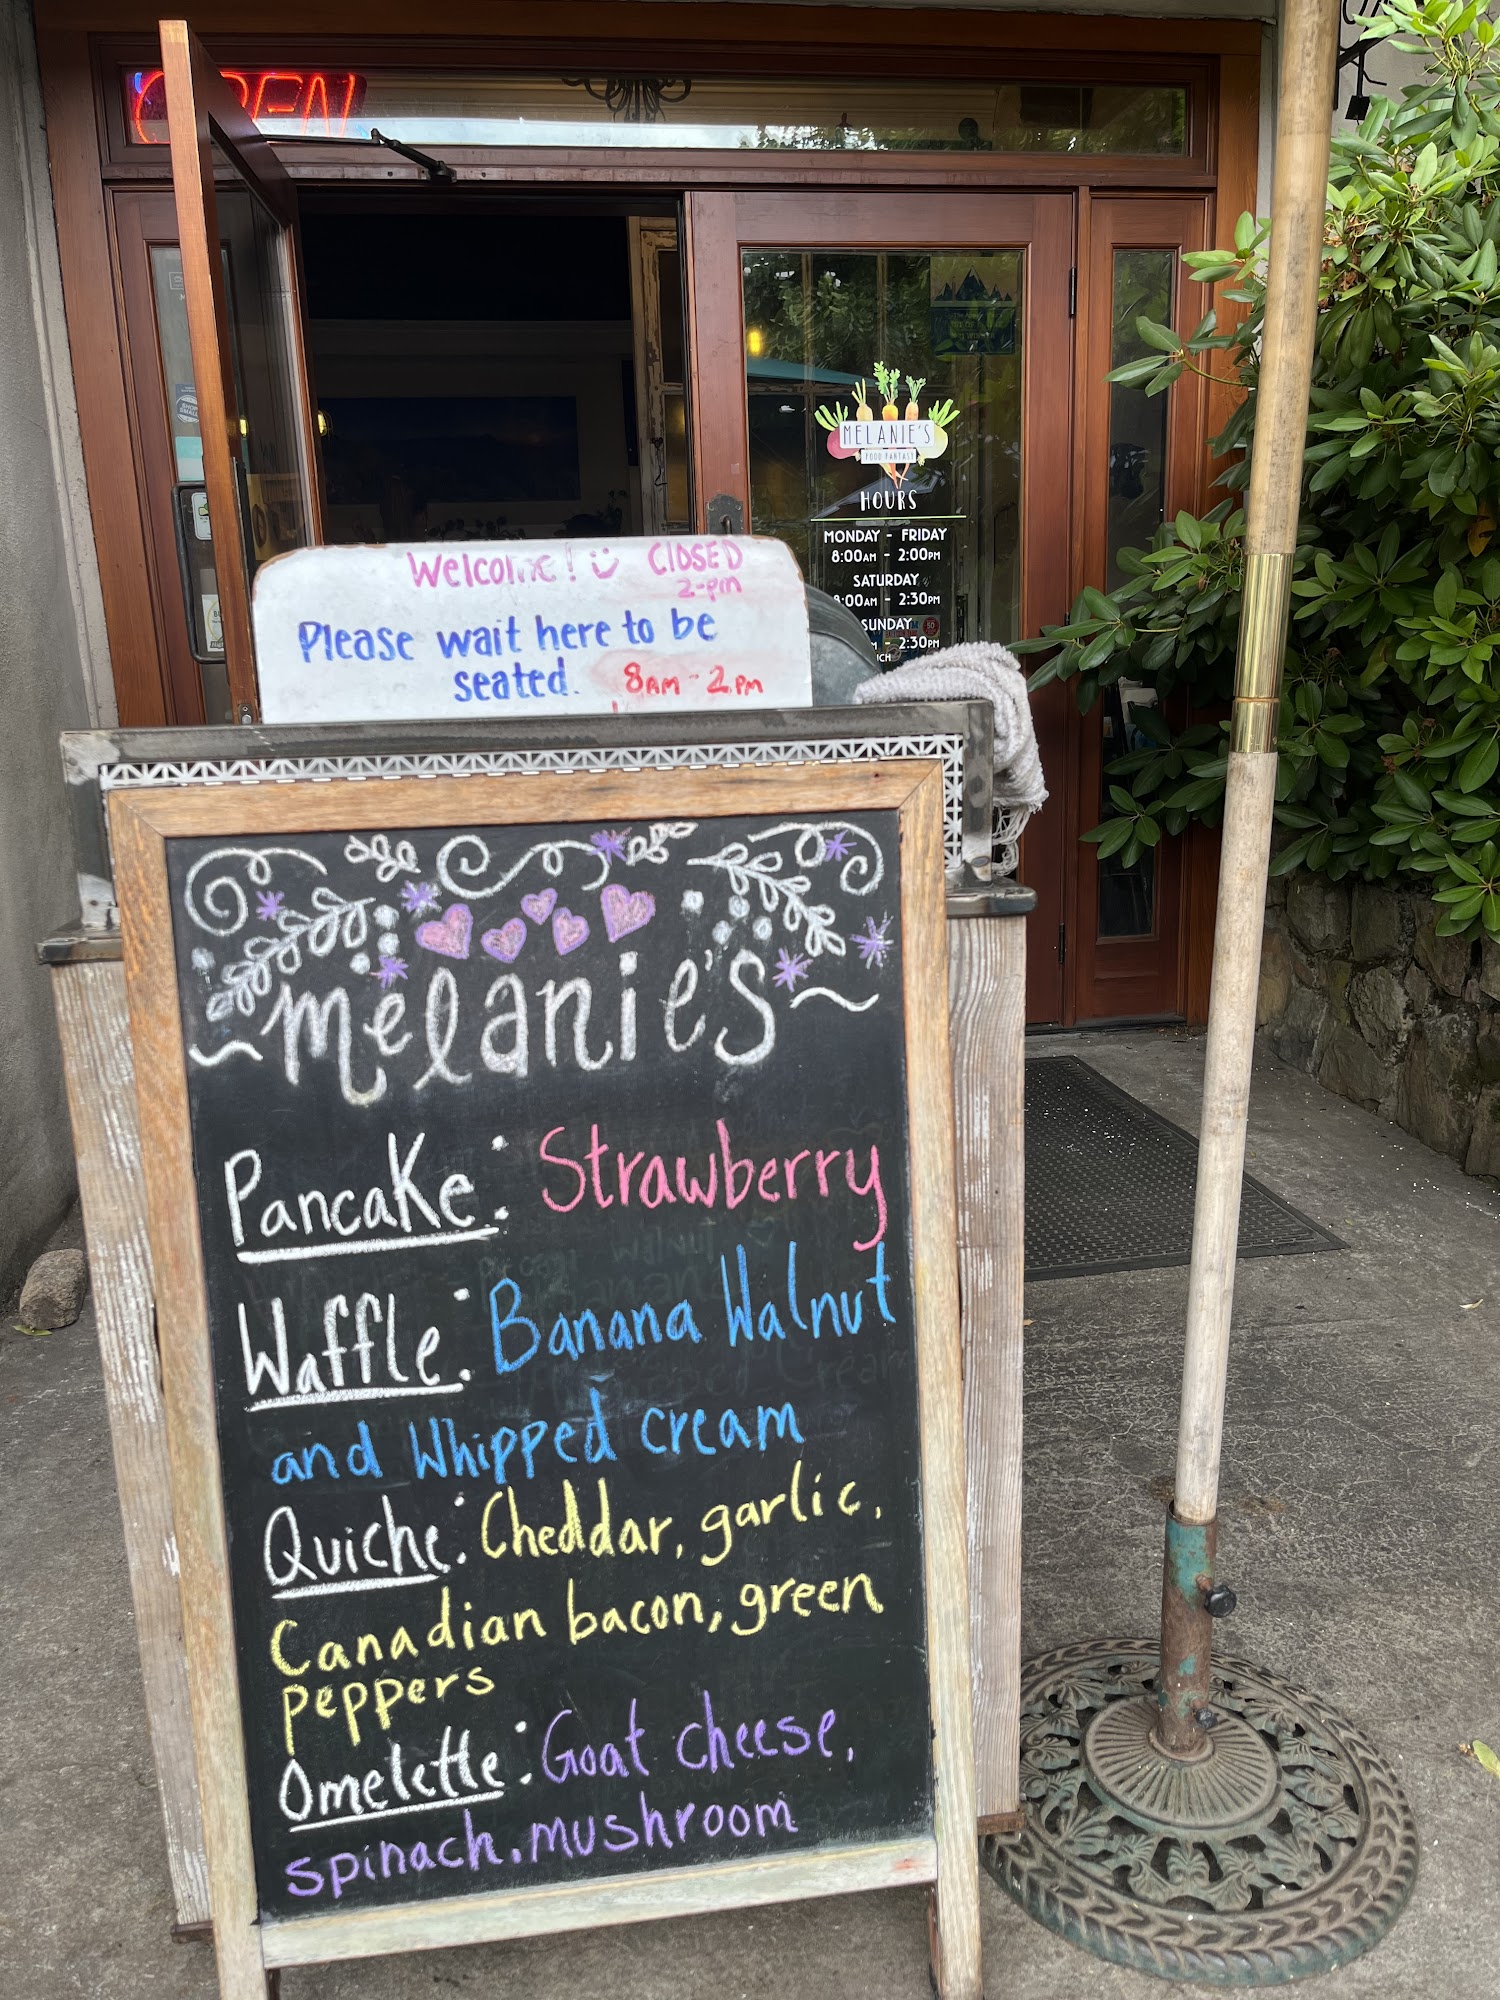 OPEN
MELANIE'S
FOOD FANTASY
HOURS
MONDAY - FRIDAY
8:00AM - 2:00PM
SATURDAY
8:00AM - 2:30PM
SUNDAY
- 2:30PM
Welcome! CLOSED
2-pm
Please wait here to be
seated. 8AM - 2.PM
melanie's
Pancake: Strawberry
Waffle: Banana Walnut
and Whipped cream
Quiche: Cheddar, garlic,
Canadian bacon, green
peppers
Omelette: Goat cheese,
spinach, mushroom